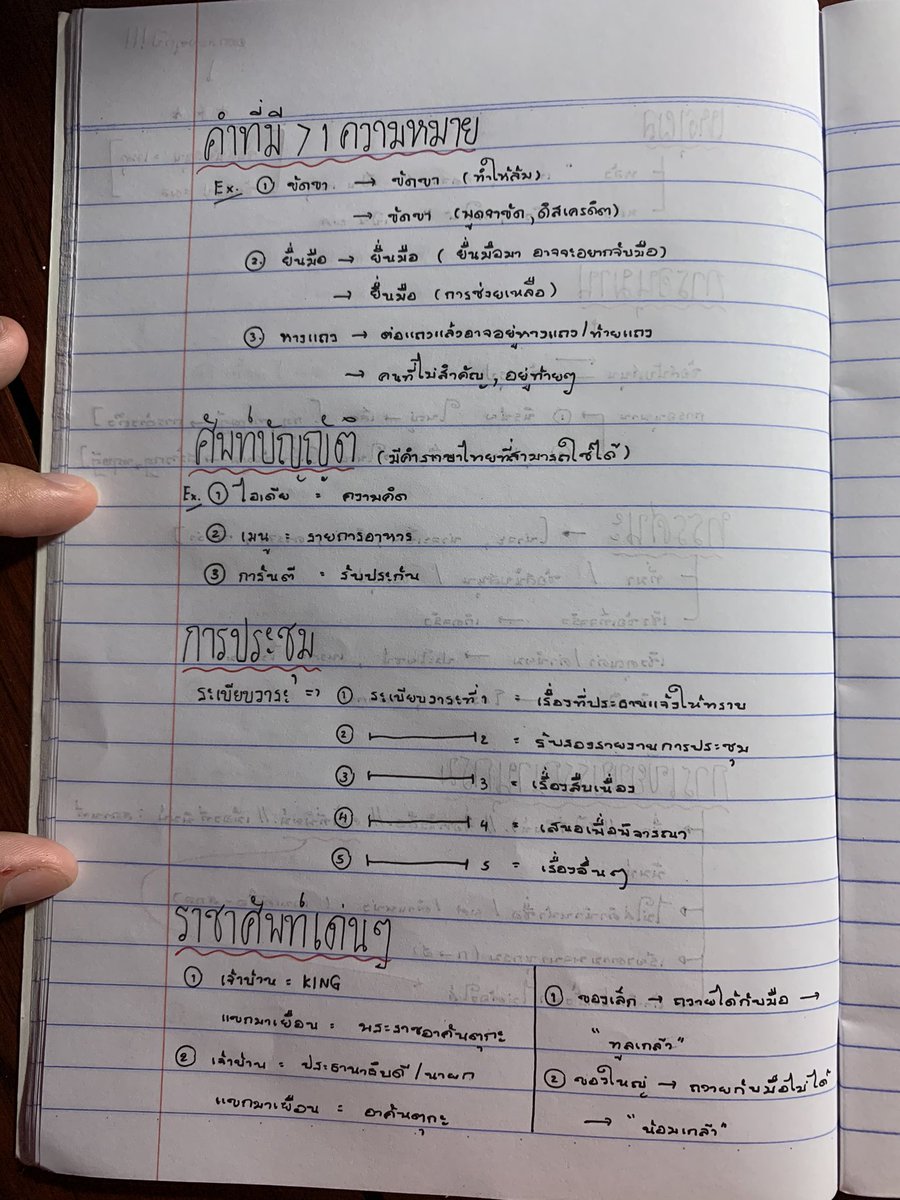 คำที่มี > 1 ความหมาย
Ex. ① ขัดขา → ขัดขา (ทำให้ล้ม)
→ ขัดขา (พูดจาขัด, ดิสเครดิต)
② ยื่นมือ → ยื่นมือ (ยื่นมือมา อาจจะอยากจับมือ)
→ ยื่นมือ (การช่วยเหลือ)
③ หางแถว → ต่อแถวแล้วอาจอยู่หางแถว/ท้ายแถว
→ คนที่ไม่สำคัญ, อยู่ท้ายๆ
ศัพท์บัญญัติ (มีคำภาษาไทยที่สามารถใช้ได้)
Ex. ① ไอเดีย = ความคิด
② เมนู = รายการอาหาร
③ การันตี = รับประกัน
การประชุม
ระเบียบวาระ => ① ระเบียบวาระที่ 1 = เรื่องที่ประธานแจ้งให้ทราบ
② 2 = รับรองรายงานการประชุม
③ 3 = เรื่องสืบเนื่อง
④ 4 = เสนอเพื่อพิจารณา
⑤ 5 = เรื่องอื่นๆ
ราชาศัพท์เด่นๆ
① เจ้าบ้าน = KING
แขกมาเยือน = พระราชอาคันตุกะ
② เจ้าบ้าน = ประธานาธิบดี/นายก
แขกมาเยือน = อาคันตุกะ
① ของเล็ก → ถวายได้กับมือ →
"ทูลเกล้า"
② ของใหญ่ → ถวายกับมือไม่ได้
→ "น้อมเกล้า"